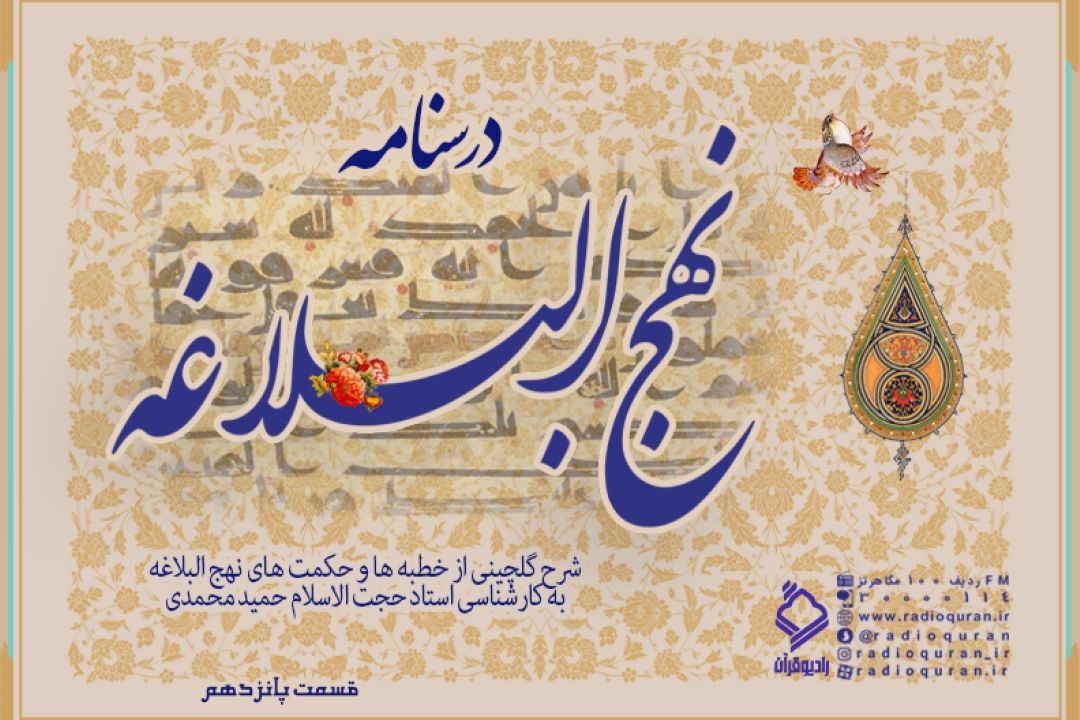 درسنامه
نهج البلاغه
شرح گلچینی از خطبه ها و حکمت های نهج البلاغه
به کارشناسی استاد حجت الاسلام حمید محمدی
قسمت پانزدهم
رادیو قرآن
FM ردیف ۱۰۰ مگاهرتز
۳۰۰۰۰۱۱٤
www.radioquran.ir
@radioquran
radioquran_ir
radioquran.ir